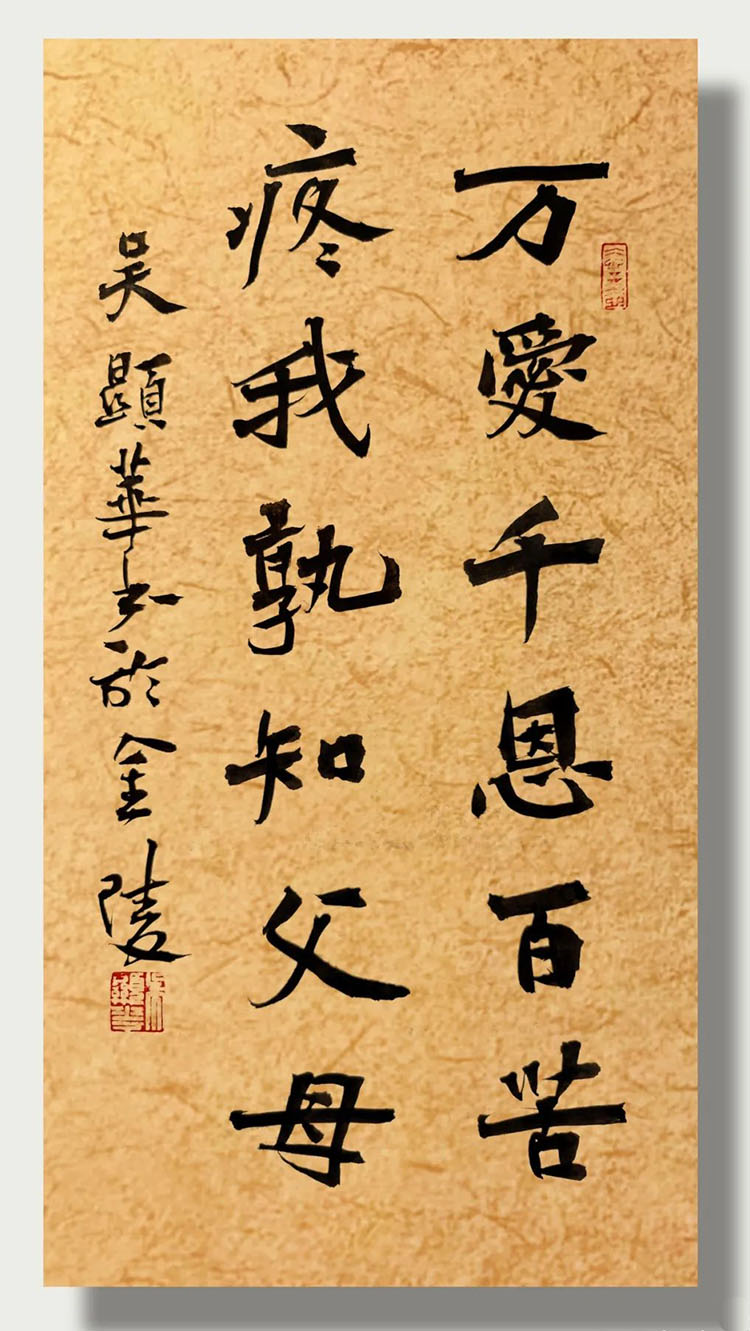 万愛千恩百苦
疼我孰知父母
吴顯華书於金陵